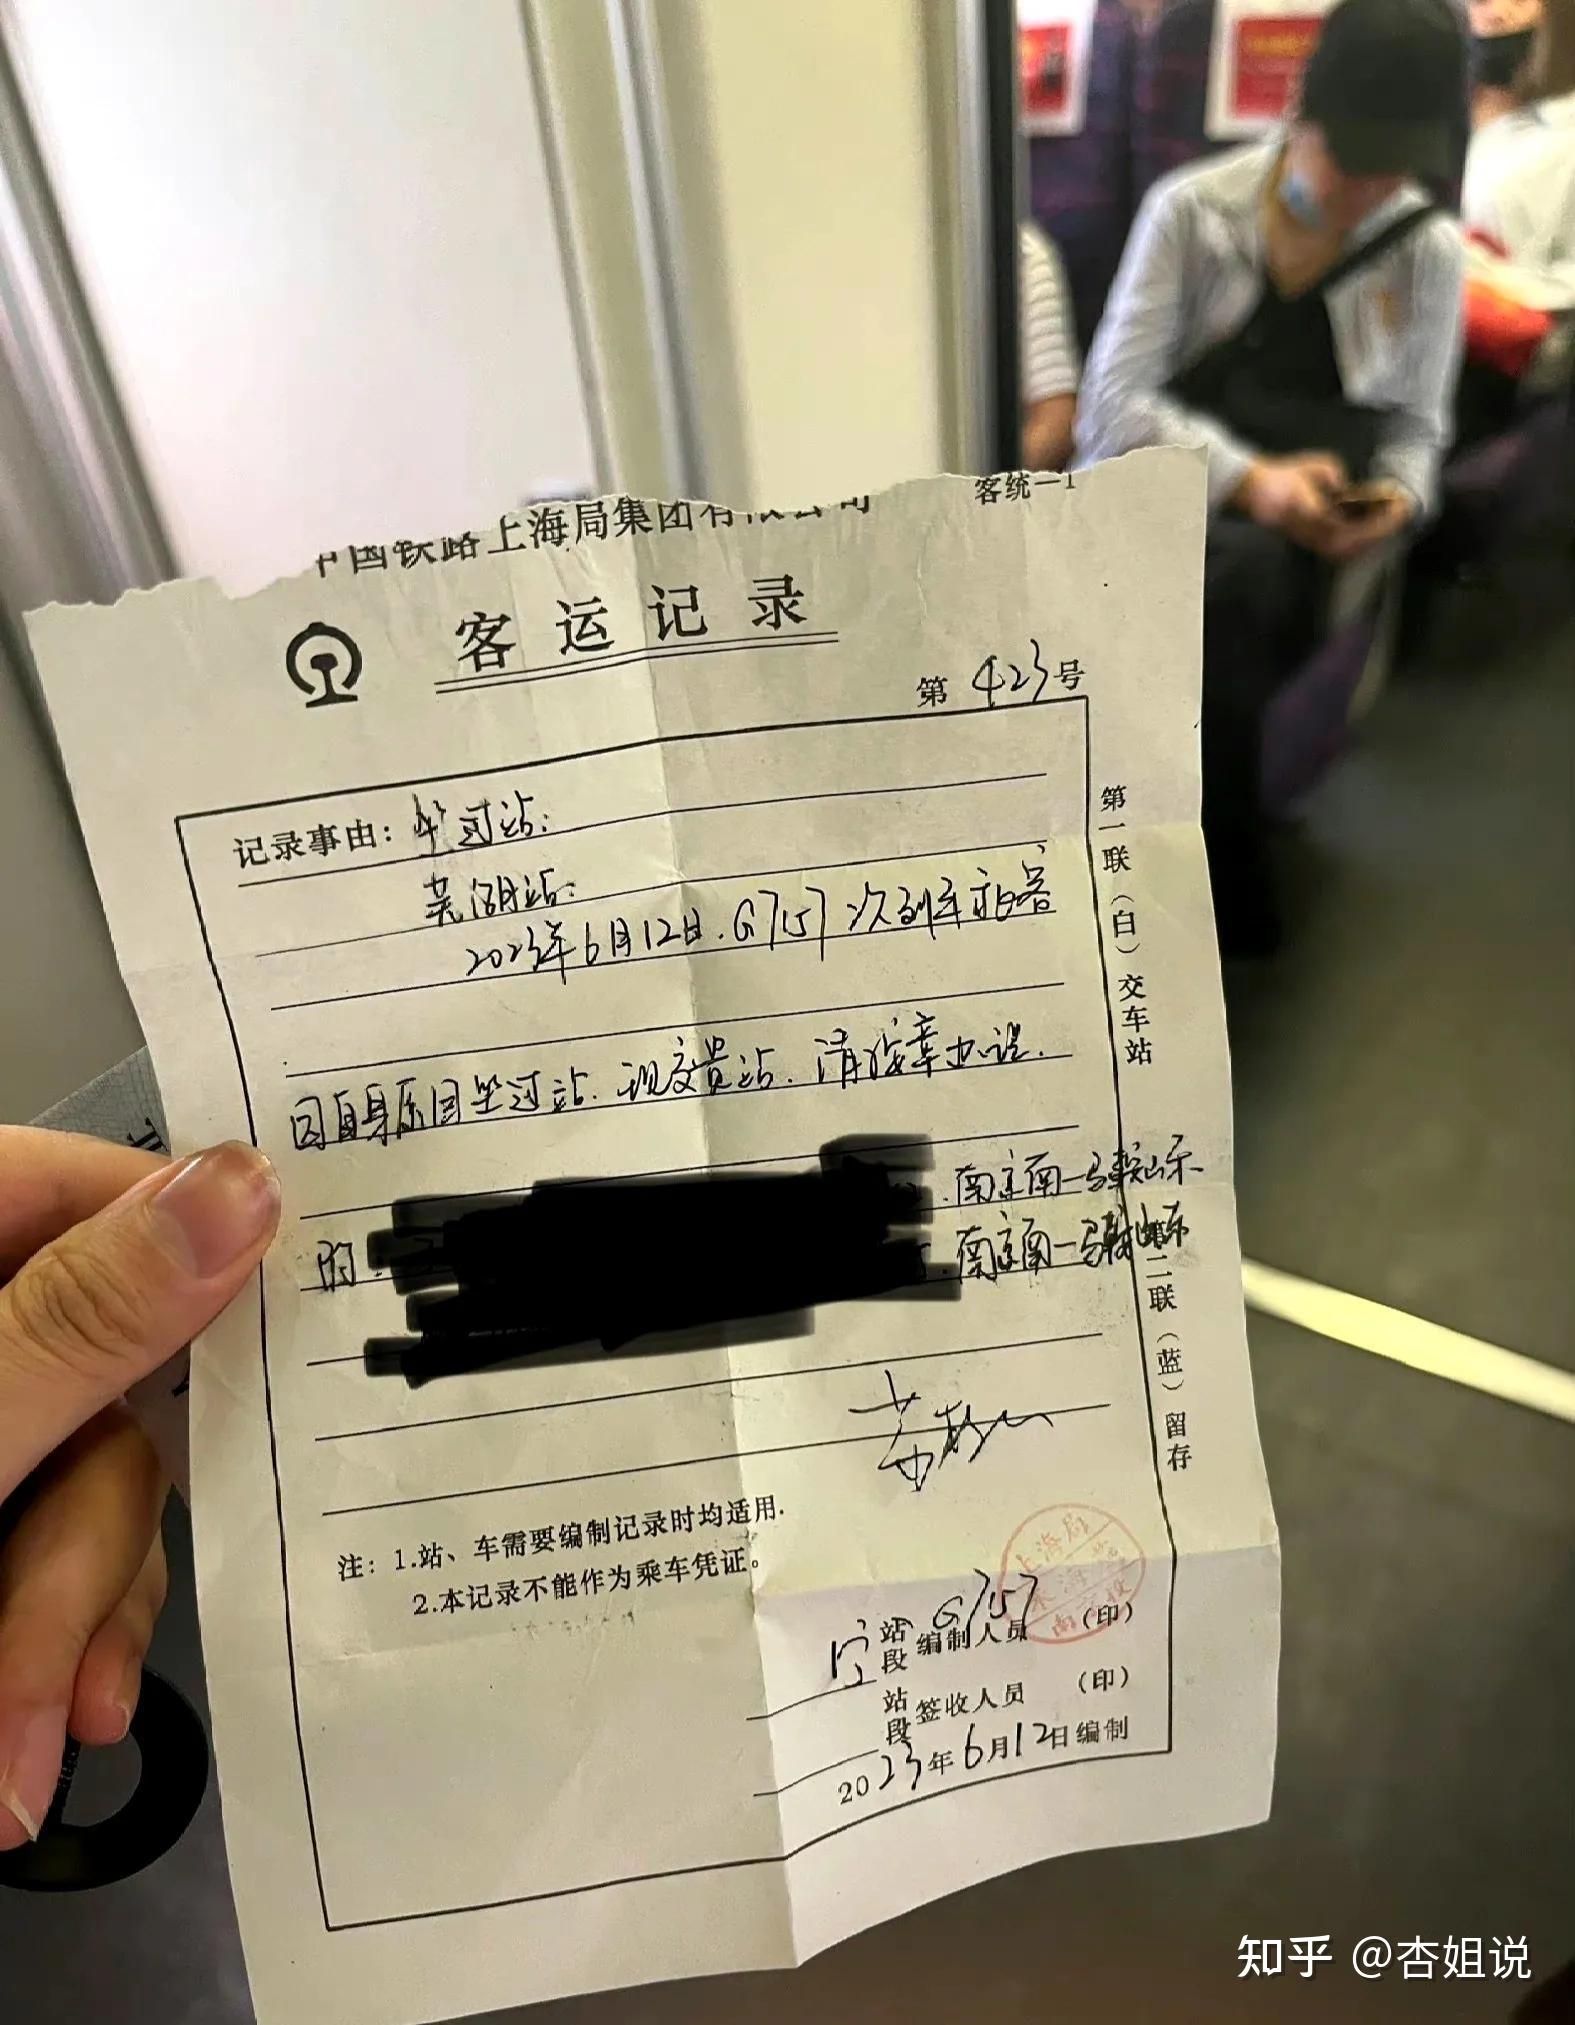 中国铁路上海局集团有限公司
客统一1
客运记录
第 423 号
记录事由：坐过站：
芜湖站：
2023年6月12日.G7157次列车旅客
因自身原因坐过站.现交贵站.请按章办理.
南京南一马鞍山东
的：
南京南一马鞍山东
注：1.站、车需要编制记录时均适用.
2.本记录不能作为乘车凭证。
上海局
南京段
G7157
站段 编制人员 (印)
站段 签收人员 (印)
2023年6月12日编制
第一联（白）交车站
第二联（蓝）留存
知乎 @杏姐说